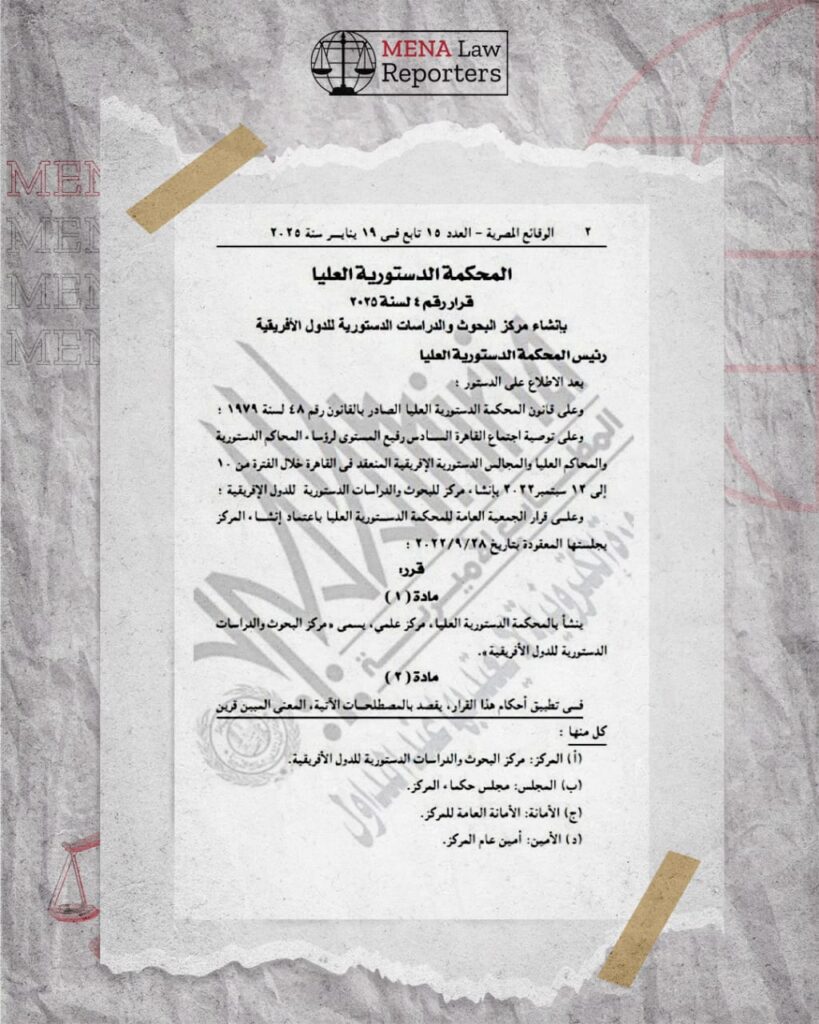 MENA Law
Reporters
MEN
MEN
MEN
MEN
٢ الوقائع المصرية – العدد ١٥ تابع فى ١٩ يناير سنة ٢٠٢٥
المحكمة الدستورية العليا
قرار رقم ٤ لسنة ٢٠٢٥
بإنشاء مركز البحوث والدراسات الدستورية للدول الأفريقية
رئيس المحكمة الدستورية العليا
بعد الاطلاع على الدستور ؛
وعلى قانون المحكمة الدستورية العليا الصادر بالقانون رقم ٤٨ لسنة ١٩٧٩ ؛
وعلى توصية اجتماع القاهرة السادس رفيع المستوى لرؤساء المحاكم الدستورية
والمحاكم العليا والمجالس الدستورية الإفريقية المنعقد فى القاهرة خلال الفترة من ١٠
إلى ١٢ سبتمبر٢٠٢٢ بإنشاء مركز للبحوث والدراسات الدستورية للدول الإفريقية ؛
وعلى قرار الجمعية العامة للمحكمة الدستورية العليا باعتماد إنشاء المركز
بجلستها المعقودة بتاريخ ٢٠٢٢/٩/٢٨ ؛
قرر:
مادة ( ١ )
ينشأ بالمحكمة الدستورية العليا، مركز علمي، يسمى «مركز البحوث والدراسات
الدستورية للدول الأفريقية».
مادة ( ٢ )
فى تطبيق أحكام هذا القرار، يقصد بالمصطلحات الآتية، المعنى المبين قرين
كل منها :
(أ) المركز: مركز البحوث والدراسات الدستورية للدول الأفريقية.
(ب) المجلس: مجلس حكماء المركز.
(ج) الأمانة: الأمانة العامة للمركز.
(د) الأمين: أمين عام المركز.